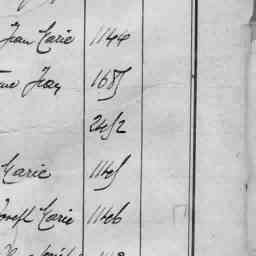 Jean Marie 1144
Jean 1685
2452
Marie 1145
Joseph Marie 1146